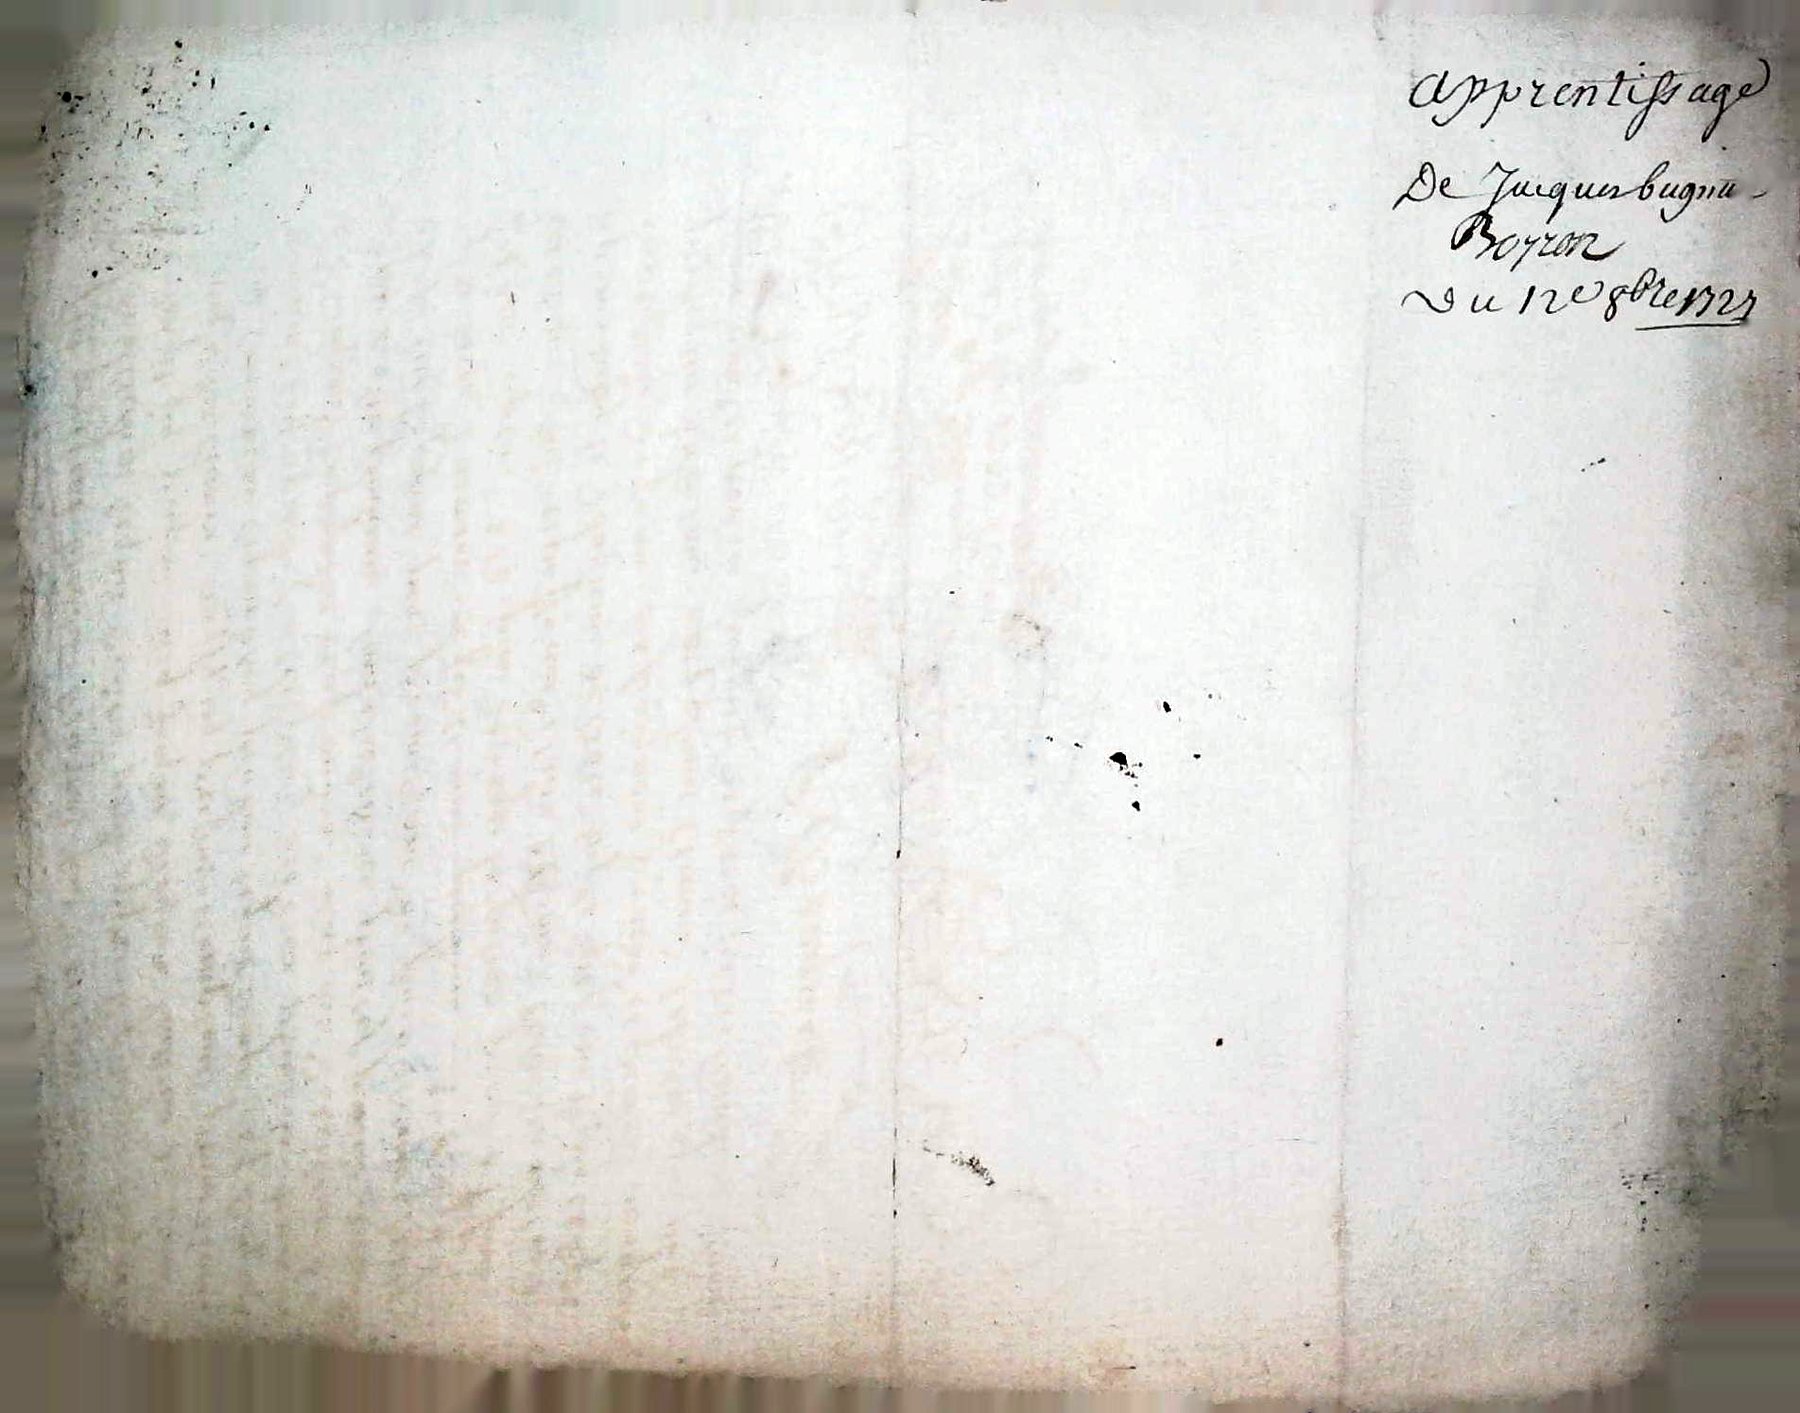 apprentissage
De Jacques bugna-
Boyron
Du 12e 8bre 1727